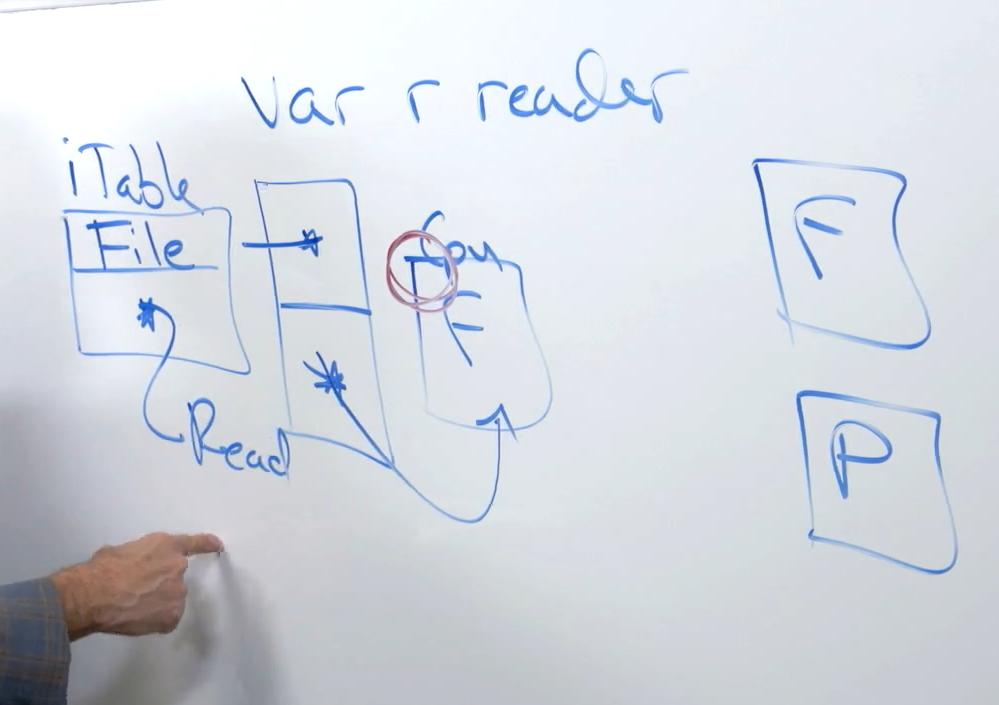 var r reader
iTable
File
Read
Copy
F
F
P